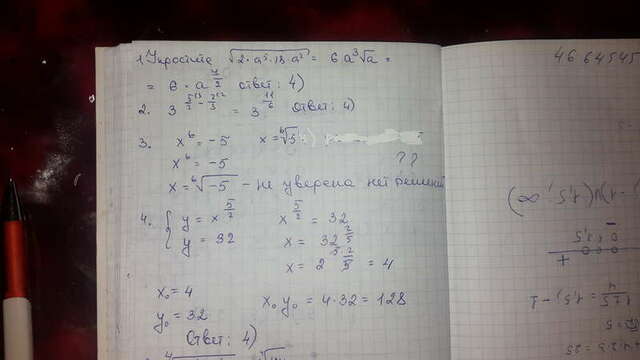 1. Упростите √2·a⁵·18·a² = 6a³√a =
= 6·a^(7/2) ответ: 4)
2. 3^(5/2 - 2/3) = 3^(11/6) Ответ: 4)
3. x⁶ = -5 x = ⁶√-5
x⁶ = -5 ??
x = ⁶√-5 - не уверена нет решений
4. { y = x^(5/2) x^(5/2) = 32
y = 32 x = 32^(2/5)
x = 2^(5·2/5) = 4
x₀ = 4
y₀ = 32 x₀y₀ = 4·32 = 128
Ответ: 4)
4664545